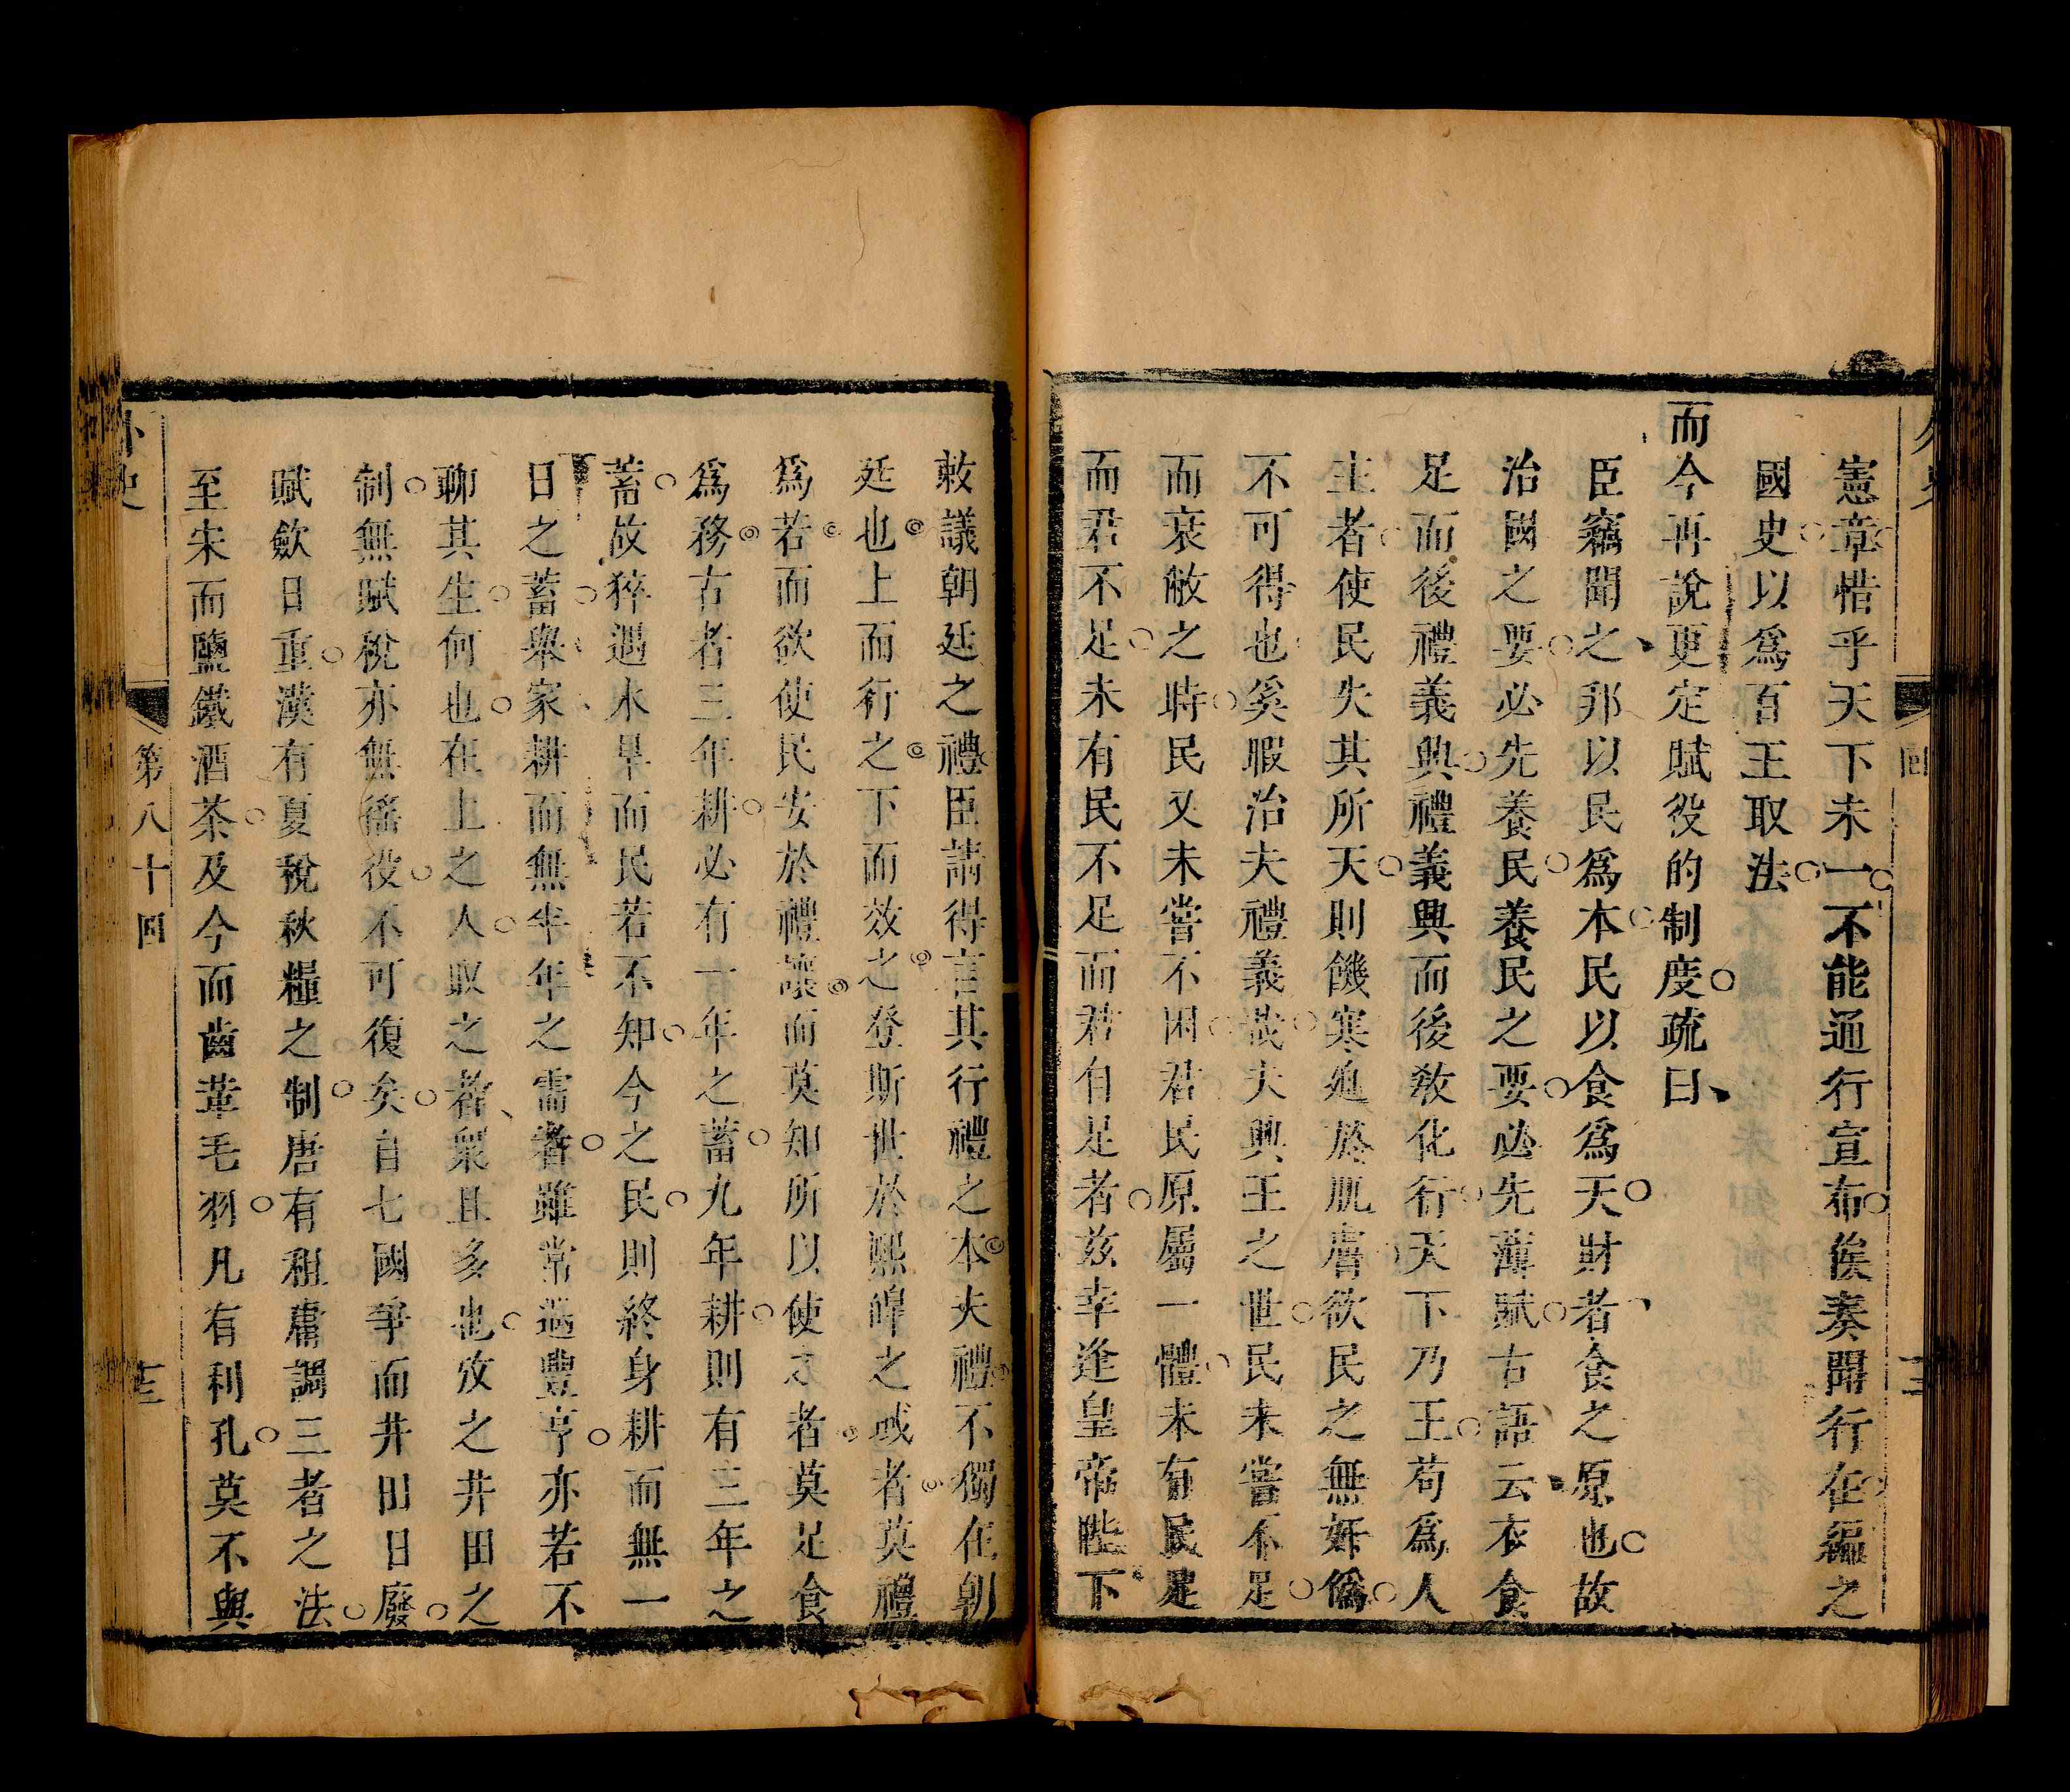 憲章惜乎天下未一不能通行宣布俟奏聞行在編之
國史以爲百王取法
而今再說更定賦役的制度疏曰
臣竊聞之邦以民爲本民以食爲天財者食之原也故
治國之要必先養民養民之要必先薄賦古語云衣食
足而後禮義興禮義興而後敎化行天下乃王苟爲人
主者使民失其所天則饑寒廹於肌膚欲民之無奸僞
不可得也奚暇治夫禮義哉夫興王之世民未嘗不足
而衰敝之時民又未嘗不困君民原屬一體未有民足
而君不足未有民不足而君有足者兹幸逢皇帝陛下
敕議朝廷之禮臣請得言其行禮之本夫禮不獨在朝
廷也上而行之下而效之登斯世於熙皥之或者莫禮
爲若而欲使民安於禮讓而莫知所以使之者莫足食
爲務古者三年耕必有一年之蓄九年耕則有三年之
蓄故猝遇水旱而民若不知今之民則終身耕而無一
日之蓄舉家耕而無半年之需者雖常遇豐亨亦若不
聊其生何也在上之人取之者衆且多也攷之井田之
制無賦稅亦無徭役不可復矣自七國爭而井田日廢
賦歛日重漢有夏稅秋糧之制唐有租庸調三者之法
至宋而鹽鐵酒茶及今而齒革毛羽凡有利孔莫不與
外史
第八十回
十三